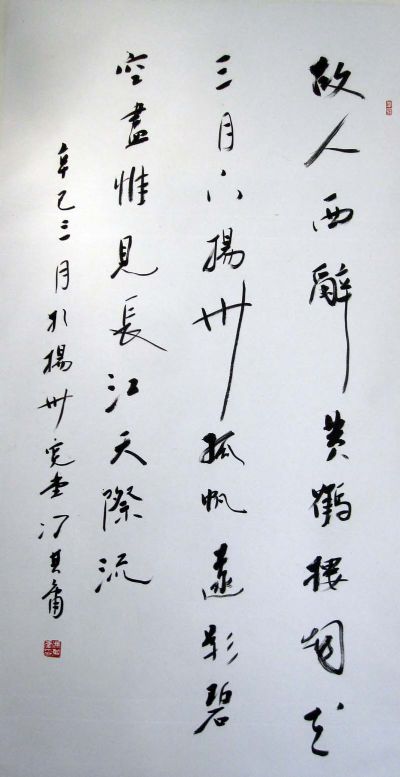 故人西辭黄鶴樓烟花
三月下揚州孤帆遠影碧
空盡惟見長江天際流
辛巳三月於揚州寬堂馮其庸